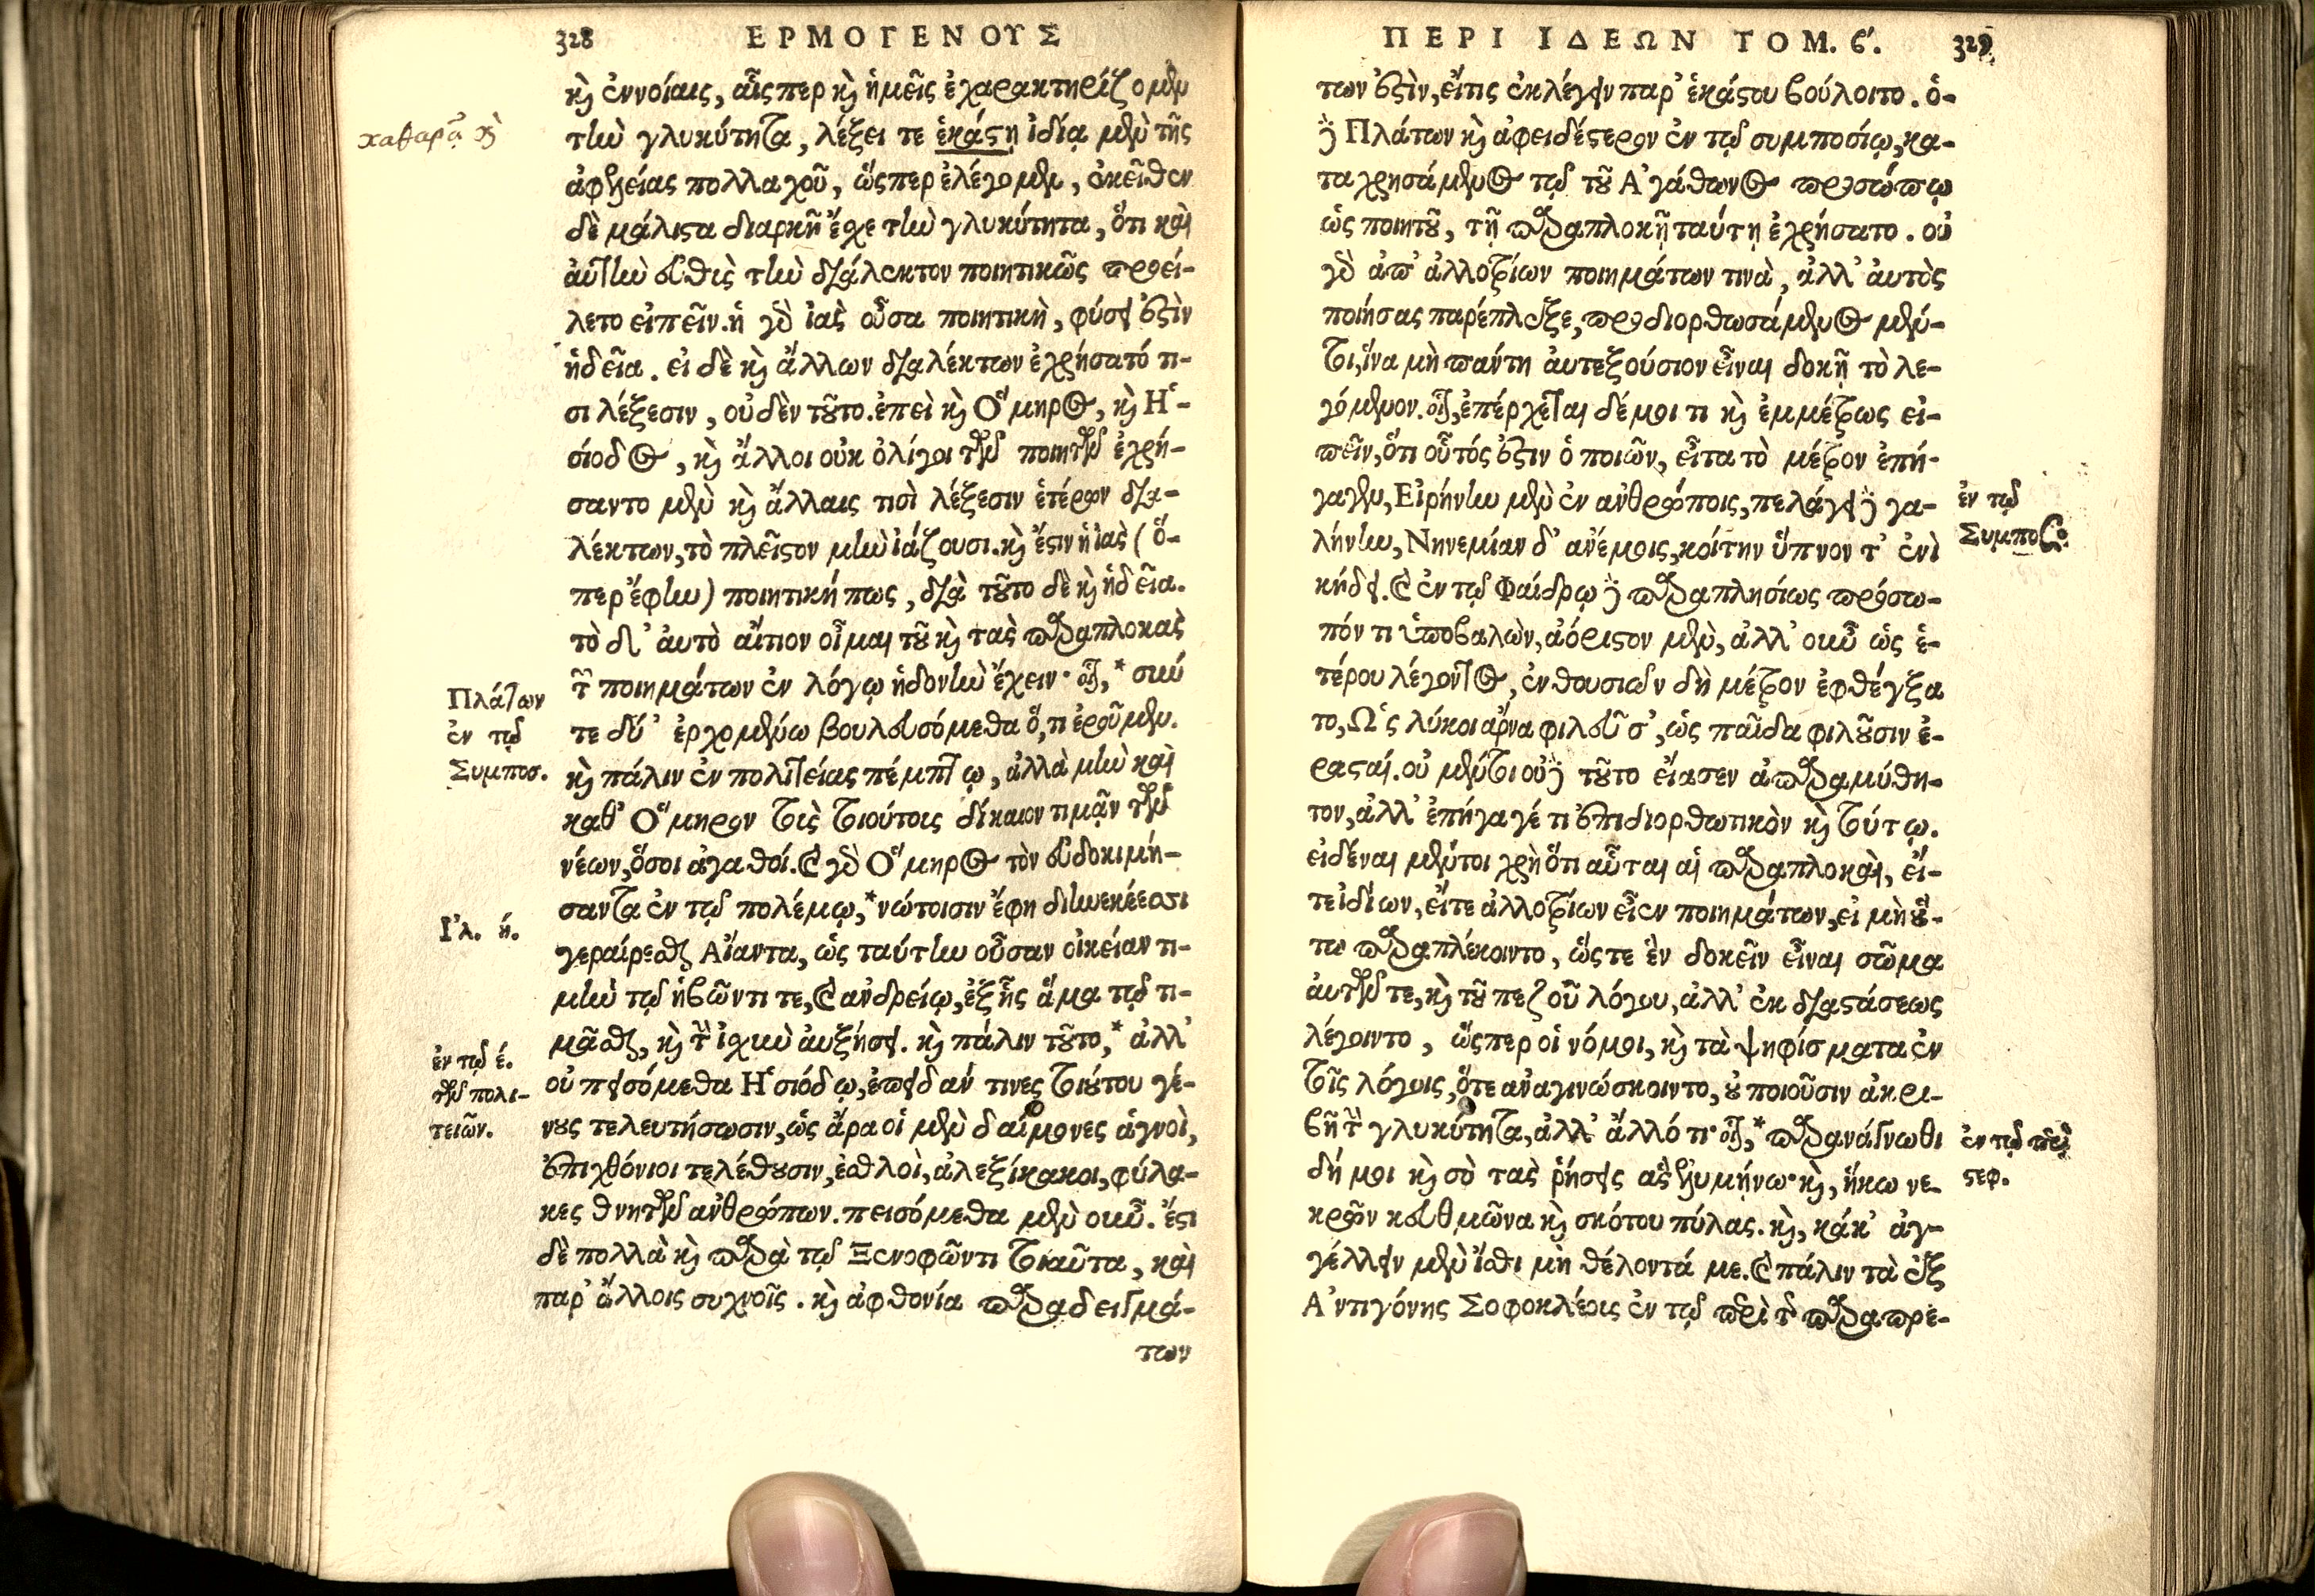 328 ΕΡΜΟΓΕΝΟΥΣ
καὶ ἐννοίαις, αἷςπερ καὶ ἡμεῖς ἐχαρακτηρίζομεν
τὴν γλυκύτητα, λέξει τε ἑκάστῃ ἰδίᾳ μὲν τῆς
καθαρᾷ καὶ
ἀφελείας πολλαχοῦ, ὥςπερ ἐλέγομεν, ἐκεῖθεν
δὲ μάλιστα διαρκῆ ἔχε τὴν γλυκύτητα, ὅτι καὶ
αὐτὴν εὐθὺς τὴν διάλεκτον ποιητικῶς προεί-
λετο εἰπεῖν. ἡ γὸ ἰὰς οὖσα ποιητικὴ, φύσει ἐστὶν
ἡδεῖα. εἰ δὲ καὶ ἄλλων διαλέκτων ἐχρήσατό τι-
σι λέξεσιν, οὐδὲν τοῦτο. ἐπεὶ καὶ Ὅμηρος, καὶ Ἡ-
σίοδος, καὶ ἄλλοι οὐκ ὀλίγοι τῶν ποιητῶν ἐχρή-
σαντο μὲν καὶ ἄλλαις τισὶ λέξεσιν ἑτέρων δια-
λέκτων, τὸ πλεῖστον μὴν ἰάζουσι. καὶ ἔστιν ἡ ἰὰς (ὅ-
περ ἔφην) ποιητική πως, διὰ τοῦτο δὲ καὶ ἡδεῖα.
τὸ δ' αὐτὸ αἴτιον οἶμαι τοῦ καὶ τὰς παραπλοκὰς
τῶν ποιημάτων ἐν λόγῳ ἡδονὴν ἔχειν· οἷον, * σύν
τε δύ' ἐρχομένω βουλευσόμεθα ὅ,τι ἐροῦμεν.
καὶ πάλιν ἐν πολιτείας πέμπτῳ, ἀλλὰ μὴν καὶ
Πλάτων
ἐν τῷ
Συμποσ.
καθ' Ὅμηρον τοῖς τοιούτοις δίκαιον τιμᾶν τῶν
νέων, ὅσοι ἀγαθοί. καὶ γὸ Ὅμηρος τὸν εὐδοκιμή-
σαντα ἐν τῷ πολέμῳ, * νώτοισιν ἔφη διηνεκέεσσι
Ἰλ. ή.
γεραίρεσθαι Αἴαντα, ὡς ταύτην οὖσαν οἰκείαν τι-
μὴν τῷ ἡβῶντι τε, καὶ ἀνδρείῳ, ἐξ ἧς ἅμα τῷ τι-
μᾶσθαι, καὶ τὴν ἰσχὺν αὐξήσει. καὶ πάλιν τοῦτο, * ἀλλ'
οὐ πεισόμεθα Ἡσιόδῳ, ἐπειδάν τινες τοιούτου γέ-
ἐν τῷ έ.
τῶν πολι-
τειῶν.
νους τελευτήσωσιν, ὡς ἄρα οἱ μὲν δαίμονες ἁγνοὶ,
ἐπιχθόνιοι τελέθουσιν, ἐσθλοὶ, ἀλεξίκακοι, φύλα-
κες θνητῶν ἀνθρώπων. πεισόμεθα μὲν οὖν. ἔστι
δὲ πολλὰ καὶ παρὰ τῷ Ξενοφῶντι τοιαῦτα, καὶ
παρ' ἄλλοις συχνοῖς. καὶ ἀφθονία παραδειγμά-
των
ΠΕΡΙ ΙΔΕΩΝ ΤΟΜ. ϛ'. 329
των ἐστὶν, εἴτις ἐκλέγειν παρ' ἑκάστου βούλοιτο. ὁ-
δὲ Πλάτων καὶ ἀφειδέστερον ἐν τῷ συμποσίῳ, κα-
ταχρησάμενος τῷ τοῦ Ἀγάθωνος προσώπῳ
ὡς ποιητοῦ, τῇ παραπλοκῇ ταύτῃ ἐχρήσατο. οὐ
γὸ ἀπ' ἀλλοτρίων ποιημάτων τινὰ, ἀλλ' αὐτὸς
ποίησας παρέπλεξε, προδιορθωσάμενος μέν-
τοι, ἵνα μὴ πάντη αὐτεξούσιον εἶναι δοκῇ τὸ λε-
γόμενον. οἷον, ἐπέρχεται δέ μοι τι καὶ ἐμμέτρως εἰ-
πεῖν, ὅτι οὗτός ἐστιν ὁ ποιῶν, εἶτα τὸ μέτρον ἐπή-
γαγεν, Εἰρήνην μὲν ἐν ἀνθρώποις, πελάγει δὲ γα-
λήνην, Νηνεμίαν δ' ἀνέμοις, κοίτην ὕπνον τ' ἐνὶ
ἐν τῷ
Συμποσ.
κήδει. καὶ ἐν τῷ Φαίδρῳ δὲ παραπλησίως πρόσω-
πόν τι ὑποβαλὼν, ἀόριστον μὲν, ἀλλ' οὖν ὡς ἑ-
τέρου λέγοντος, ἐνθουσιῶν δὴ μέτρον ἐφθέγξα
το, Ὡς λύκοι ἄρνα φιλεῦσ', ὡς παῖδα φιλοῦσιν ἐ-
ρασταί. οὐ μέντοι οὐδὲ τοῦτο εἴασεν ἀπαραμύθη-
τον, ἀλλ' ἐπήγαγέ τι ἐπιδιορθωτικὸν καὶ τούτῳ.
εἰδέναι μέντοι χρὴ ὅτι αὗται αἱ παραπλοκαὶ, εἴ-
τε ἰδίων, εἴτε ἀλλοτρίων εἶεν ποιημάτων, εἰ μὴ οὕ-
τω παραπλέκοιντο, ὥςτε ἓν δοκεῖν εἶναι σῶμα
αὐτῶν τε, καὶ τοῦ πεζοῦ λόγου, ἀλλ' ἐκ διαστάσεως
λέγοιντο, ὥςπερ οἱ νόμοι, καὶ τὰ ψηφίσματα ἐν
τοῖς λόγοις, ὅτε ἀναγινώσκοιντο, οὐ ποιοῦσιν ἀκρι-
βῆ τὴν γλυκύτητα, ἀλλ' ἄλλό τι· οἷον, * παρανάγνωθι
δή μοι καὶ σὸ τὰς ῥήσεις ἃς ἐλυμήνω· καὶ, ἥκω νε-
ἐν τῷ περὶ
στεφ.
κρῶν κευθμῶνα καὶ σκότου πύλας. καὶ, κάκ' ἀγ-
γέλλειν μὲν ἴσθι μὴ θέλοντά με. καὶ πάλιν τὰ ἐξ
Ἀντιγόνης Σοφοκλέοις ἐν τῷ περὶ τῆς παραπρε-